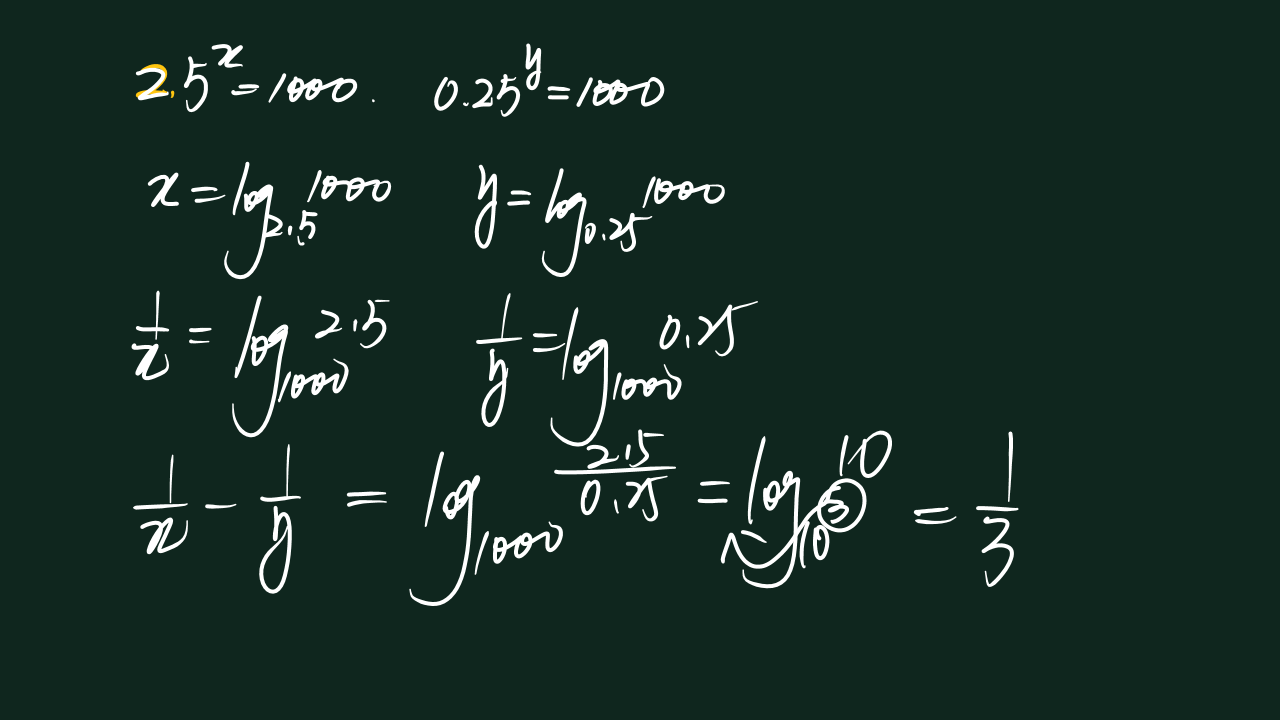 2.5^x = 1000. 0.25^y = 1000
x = log_{2.5} 1000 y = log_{0.25} 1000
1/x = log_{1000} 2.5 1/y = log_{1000} 0.25
1/x - 1/y = log_{1000} 2.5/0.25 = log_{10^3} 10 = 1/3